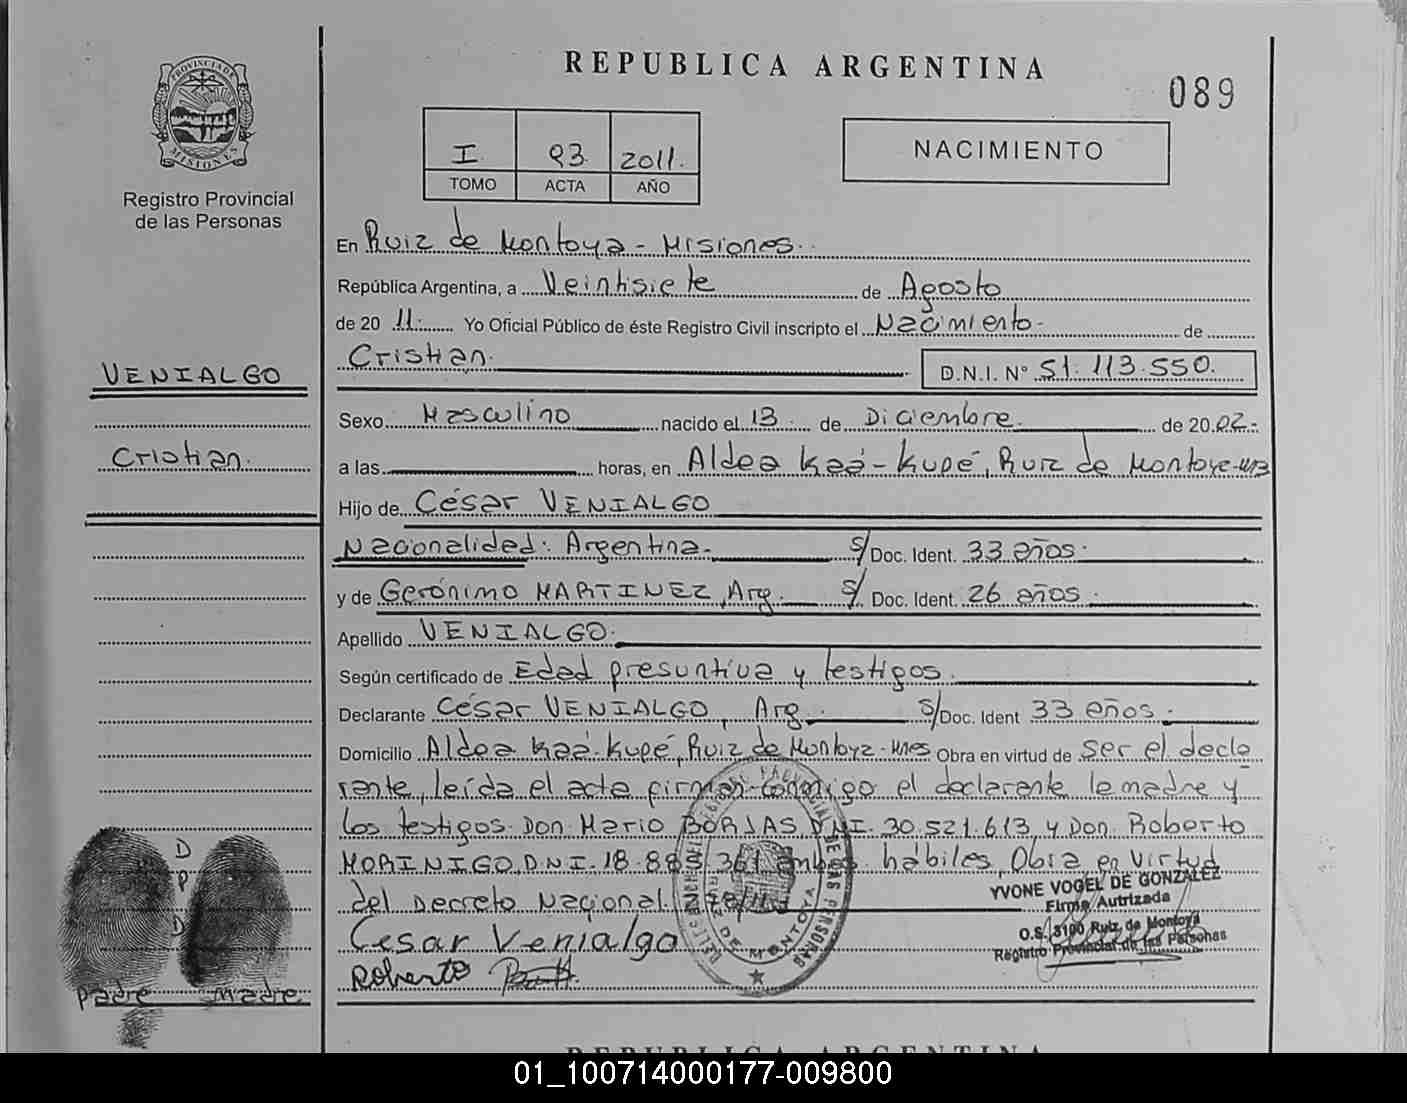 REPUBLICA ARGENTINA
089
PROVINCIA DE MISIONES
Registro Provincial
de las Personas
I 93 2011.
TOMO ACTA AÑO
NACIMIENTO
En Ruiz de Montoya - Misiones.
República Argentina, a Veintisiete de Agosto
de 20 11. Yo Oficial Público de éste Registro Civil inscripto el Nacimiento - de
Cristian. D.N.I. N° 51.113.550.
VENIALGO
Cristian.
Sexo Masculino nacido el 13 de Diciembre de 20 02.-
a las horas, en Aldea Kaá-Kupé, Ruiz de Montoya-Mis
Hijo de César VENIALGO
Nacionalidad: Argentina. S/ Doc. Ident. 33 años.
y de Gerónimo MARTINEZ, Arg. S/ Doc. Ident. 26 años.
Apellido VENIALGO.
Según certificado de Edad presuntiva y testigos.
Declarante César VENIALGO, Arg. S/ Doc. Ident 33 años.
Domicilio Aldea Kaá-Kupé, Ruiz de Montoya-Mnes Obra en virtud de ser el decla
rante, leída el acta firman conmigo el declarante la madre y
los testigos Don Mario BORJAS DNI. 30.521.613 y Don Roberto
MORINIGO D.N.I. 18.885.361 ambos hábiles, Obra en Virtud
del Decreto Nacional
Cesar Venialgo
Roberto
D P D
Padre Madre
RUIZ DE MONTOYA
YVONE VOGEL DE GONZALEZ
Firma Autrizada
O.S. 3190 Ruiz de Montoya
Registro Provincial de las Personas
REPUBLICA ARGENTINA
01_100714000177-009800